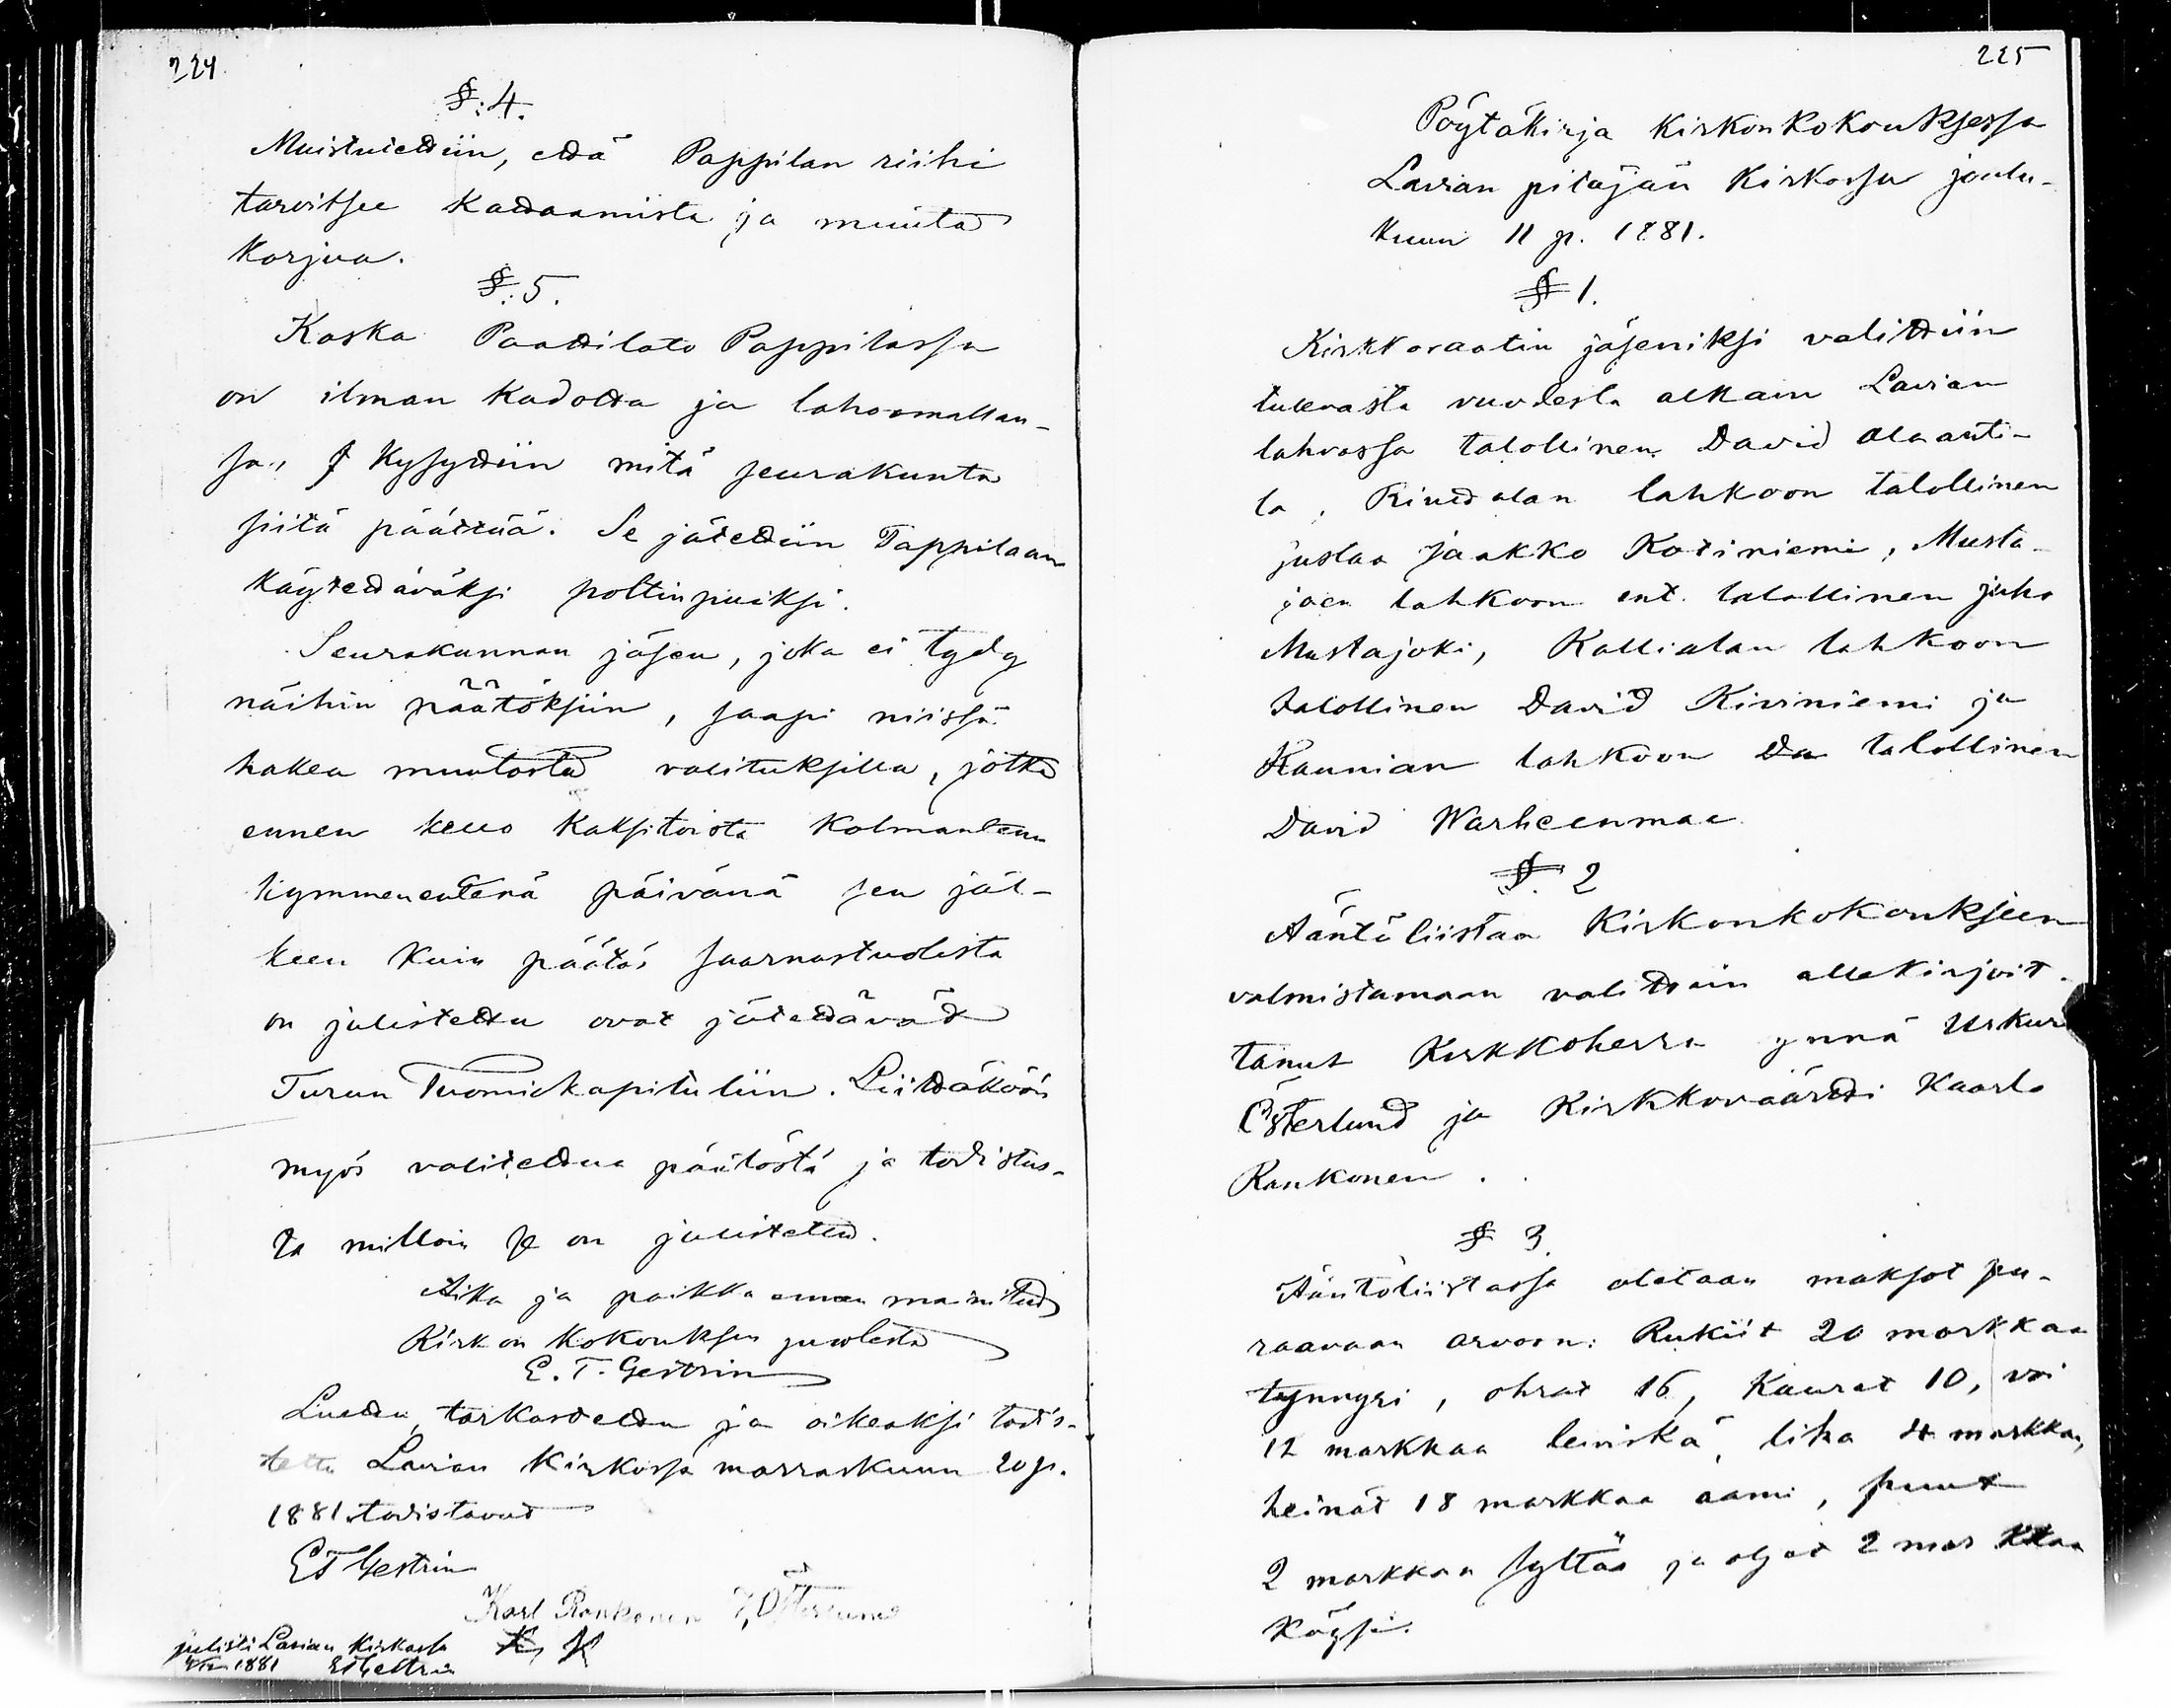 224
§:4.
Muistutettiin, että Pappilan riihi
tarvitsee kattaamista ja muuta
korjua.
§:5.
Koska Paattilato Pappilassa
on ilman kadotta ja lahoomallan-
sa, kysyttiin mitä seurakunta
siitä päättää. Se jätettiin Pappilaan
käytettäväksi polttinpuiksi.
Seurakunnan jäsen, joka ei tydy
näihin päätöksiin, saapi niissä
hakea muutosta valituksilla, jotka
ennen kello kaksitoista kolmantena
kymmenentenä päivänä sen jäl-
keen kuin päätös saarnastuolista
on julistettu ovat jätettävät
Turun Tuomiokapituliin. Liittäköön
myös valitettua päätöstä ja todistus-
ta milloin se on julistettu.
Aika ja paikka ennen mainitud
Kirkon kokouksen puolesta
E. T. Gestrin
Luettu, tarkastettu ja oikeaksi todis-
tettu Lavian kirkossa marraskuun 20 p.
1881 todistavat
ET Gestrin
Karl Rankonen F, Österlund
K, K
julisti Lavian kirkossa
1881 ETGestrin
225
Pöytäkirja kirkonkokouksessa
Lavian pitäjän kirkossa joulu-
kuun 11 p. 1881.
§ 1.
Kirkkoraatin jäseniksi valittiin
tulevasta vuodesta alkain Lavian
lahkossa talollinen David Alaantti-
la, Riuttalan lahkoon talollinen
Justaa Jaakko Kotiniemi, Musta-
joen lahkoon ent. talollinen Juho
Mustajoki, Kallialan lahkoon
talollinen David Kiviniemi ja
Haunian lahkoon Da talollinen
David Warheenmaa
§. 2
Ääntöliistaa Kirkonkokouksien
valmistamaan valittiin allekirjoit-
tanut Kirkkoherra ynnä Urkuri
Österlund ja Kirkkoväärtti Kaarlo
Rankonen.
§ 3.
Ääntöliistassa otetaan maksot seu-
raavaan arvoon: Rukiit 20 markkaa
tynnyri, ohrat 16, Kaurat 10, voi
12 markkaa leiviskä, liha 4 markkaa,
heinät 18 markkaa aami, puut
2 markkaa syltää ja oljet 2 markkaa
köysi.